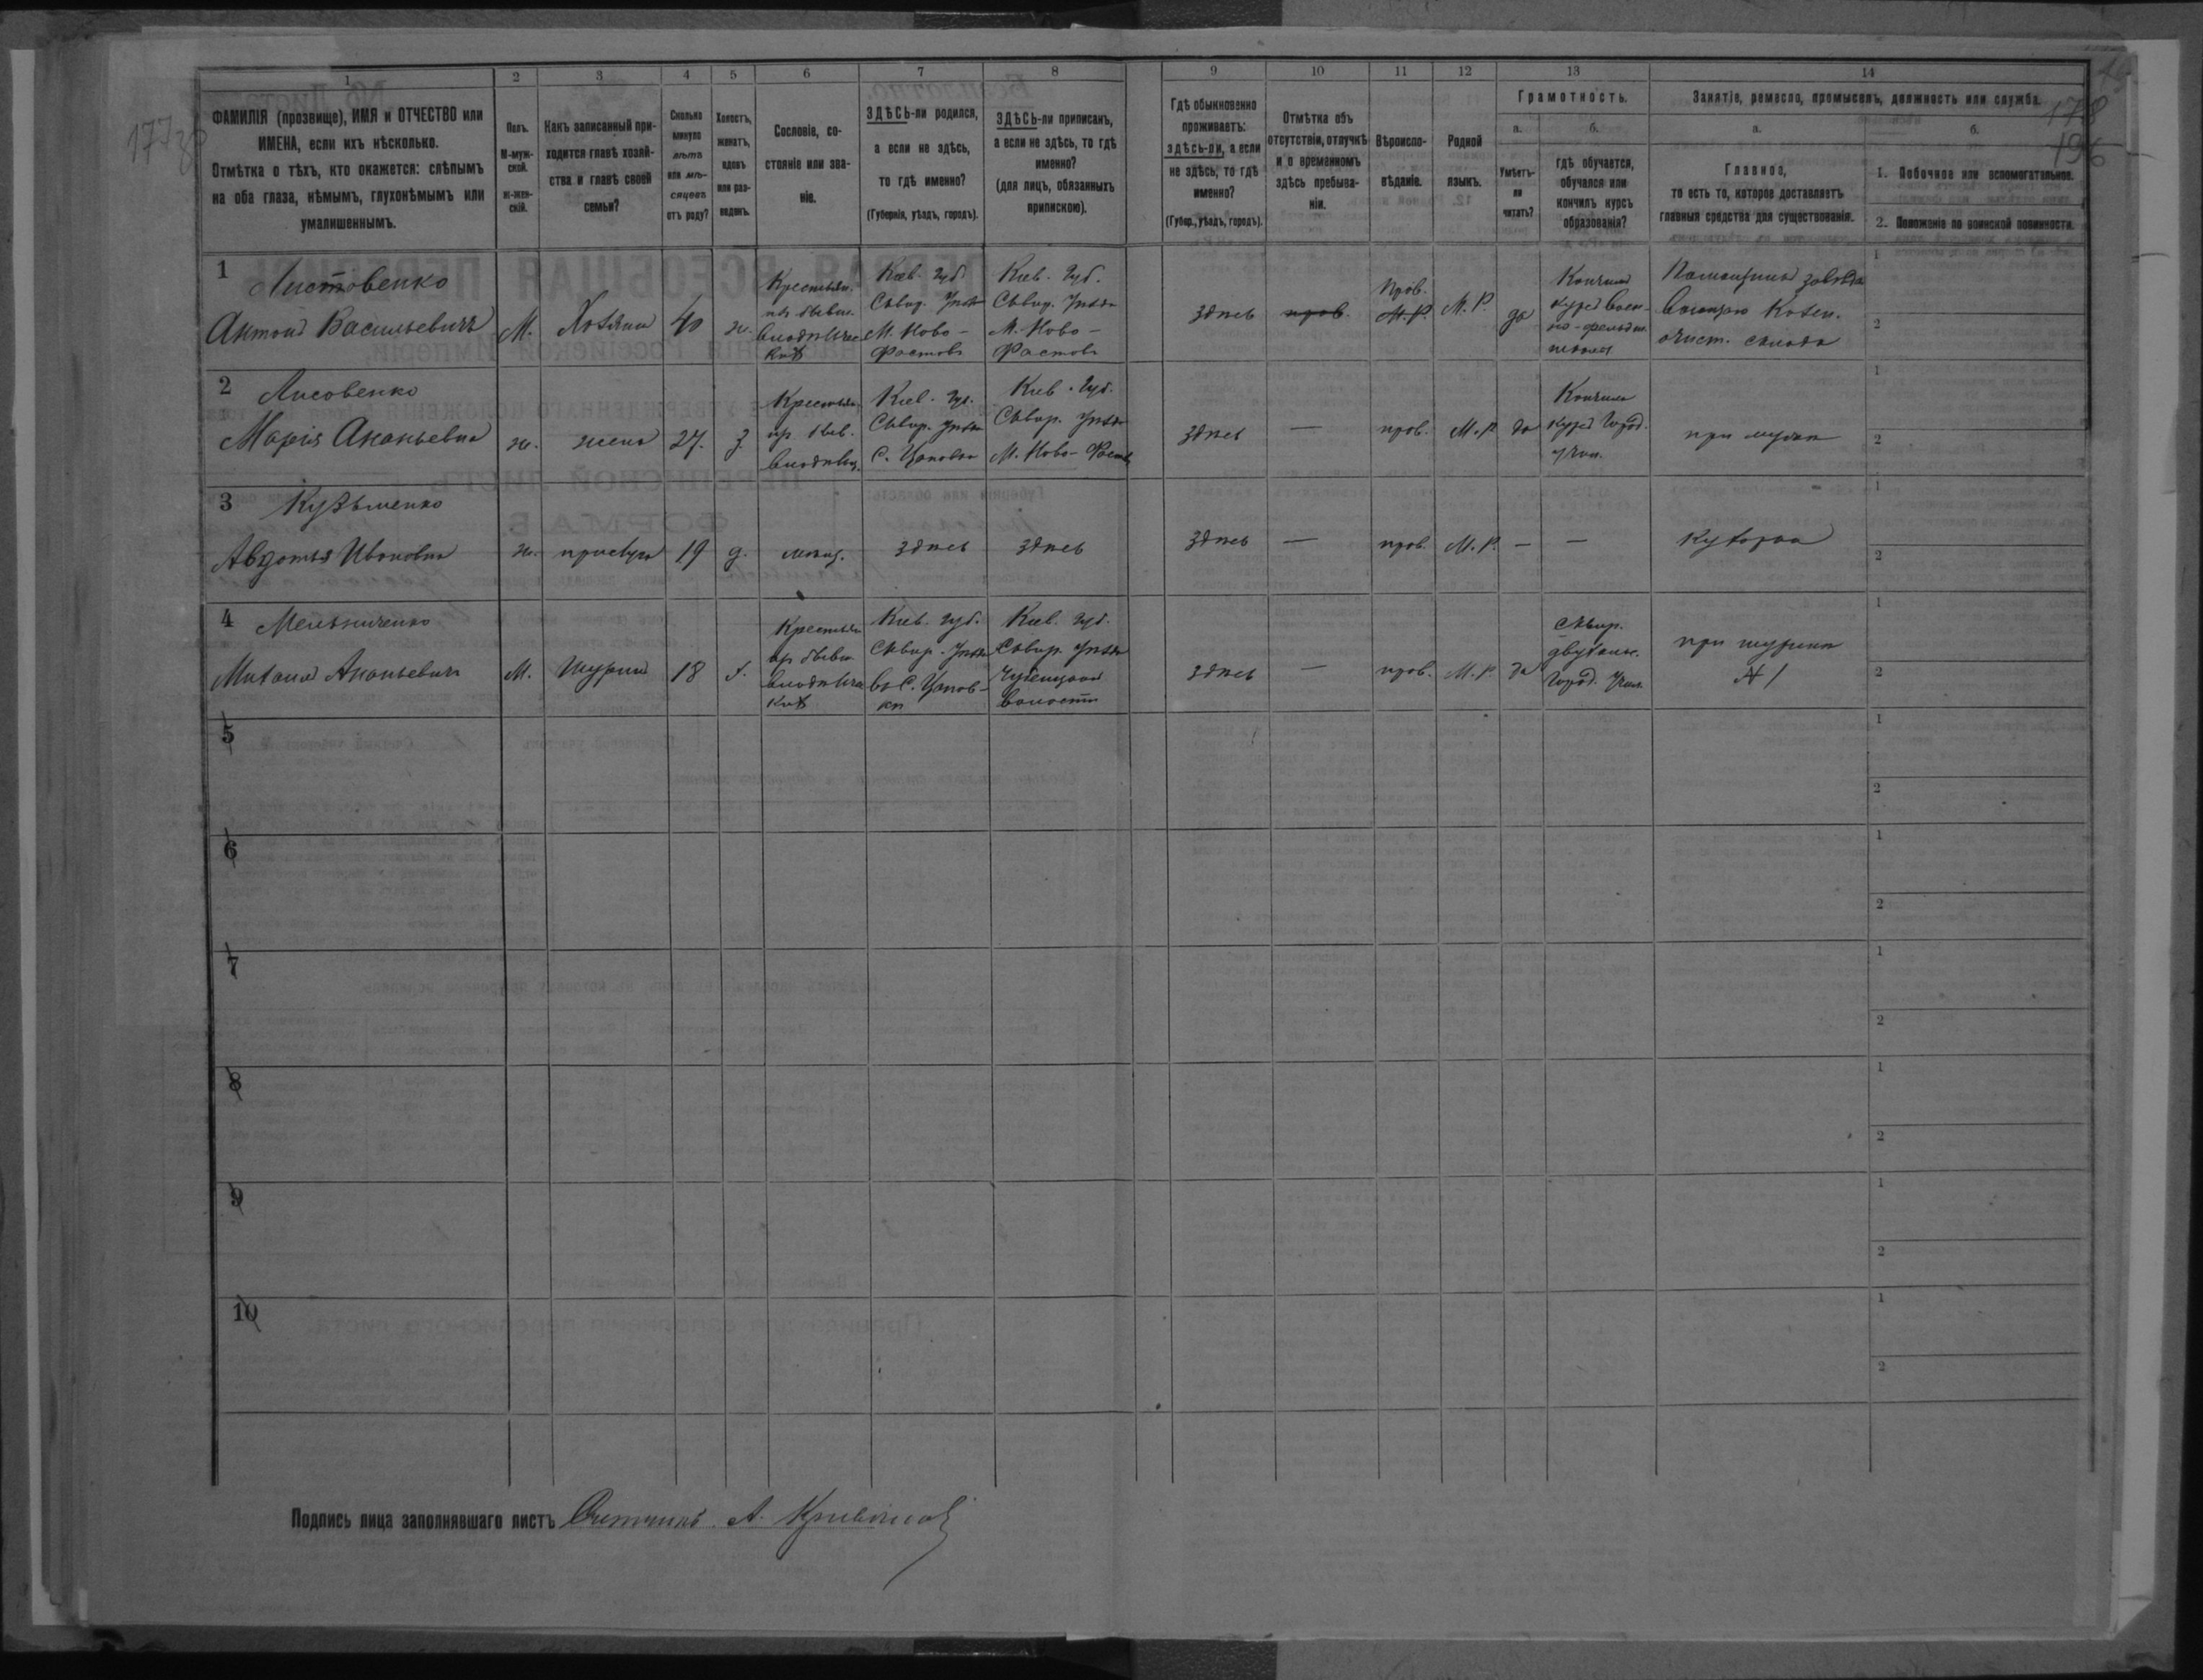 177
178
196
1 2 3 4 5 6 7 8 9 10 11 12 13 14
ФАМИЛІЯ (прозвище), ИМЯ и ОТЧЕСТВО или
ИМЕНА, если ихъ нѣсколько.
Отмѣтка о тѣхъ, кто окажется: слѣпымъ
на оба глаза, нѣмымъ, глухонѣмымъ или
умалишеннымъ.
Полъ.
М-муж-
ской.
ж-жен-
скій.
Какъ записанный при-
ходится главѣ хозяй-
ства и главѣ своей
семьи?
Сколько
минуло
лѣтъ
или мѣ-
сяцевъ
отъ роду?
Холостъ,
женатъ,
вдовъ
или раз-
веденъ.
Сословіе, со-
стояніе или зва-
ніе.
ЗДѢСЬ-ли родился,
а если не здѣсь,
то гдѣ именно?
(Губернія, уѣздъ, городъ).
ЗДѢСЬ-ли приписанъ,
а если не здѣсь, то гдѣ
именно?
(для лицъ, обязанныхъ
припискою).
Гдѣ обыкновенно
проживаетъ:
здѣсь-ли, а если
не здѣсь, то гдѣ
именно?
(Губер., уѣздъ, городъ).
Отмѣтка объ
отсутствіи, отлучкѣ
и о временномъ
здѣсь пребыва-
ніи.
Вѣроиспо-
вѣданіе.
Родной
языкъ.
Грамотность.
а.
Умѣетъ-
ли
читать?
б.
гдѣ обучается,
обучался или
кончилъ курсъ
образованія?
Занятіе, ремесло, промыселъ, должность или служба.
а.
Главное,
то есть то, которое доставляетъ
главныя средства для существованія.
б.
1. Побочное или вспомогательное.
2. Положеніе по воинской повинности.
1
Листовенко
Антонъ Васильевичъ
М.
Хозяинъ
40
ж.
Крестьян.
Кіев. губ.
Сквир. уѣзда
М. Ново-
Фастовъ
Кіев. губ.
Сквир. уѣзда
М. Ново-
Фастовъ
здѣсь
прав.
Прав.
М. Р.
М. Р.
да
Кончилъ
курсъ воен-
но-фельдш.
Помощникъ
1
2
2
Лисовенко
Марія Ананьевна
ж.
жена
27.
з.
Крестьян
Кіев. губ.
Сквир. уѣзда
С. Цаповка
Кіев. губ.
Сквир. уѣзда
М. Ново-Фаст
здѣсь
—
прав.
М. Р.
да
Кончила
курсъ город.
учил.
при мужѣ
1
2
3
Кузьменко
Авдотья Ивановна
ж.
прислуга
19
д.
мѣщ.
здѣсь
здѣсь
здѣсь
—
прав.
М. Р.
—
—
кухарка
1
2
4
Мельниченко
Михаилъ Ананьевичъ
М.
Шуринъ
18
х.
Крестьян
Кіев. губ.
Сквир. уѣзда
въ С. Цапов-
кѣ
Кіев. губ.
Сквир. уѣзда
волости
здѣсь
—
прав.
М. Р.
да
Сквир.
двухклас.
город. учил.
при шуринѣ
№ 1
1
2
5
1
2
6
1
2
7
1
2
8
1
2
9
1
2
10
1
2
Подпись лица заполнявшаго листъ Счетчикъ А.